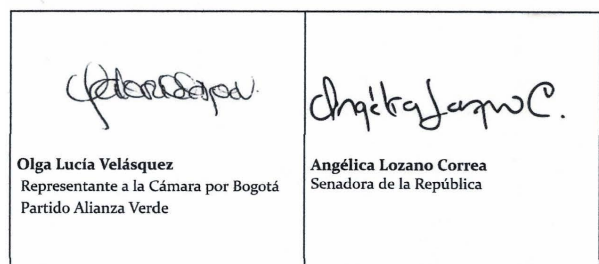 Olga Lucía Velásquez
Representante a la Cámara por Bogotá
Partido Alianza Verde
Angélica Lozano C.
Angélica Lozano Correa
Senadora de la República